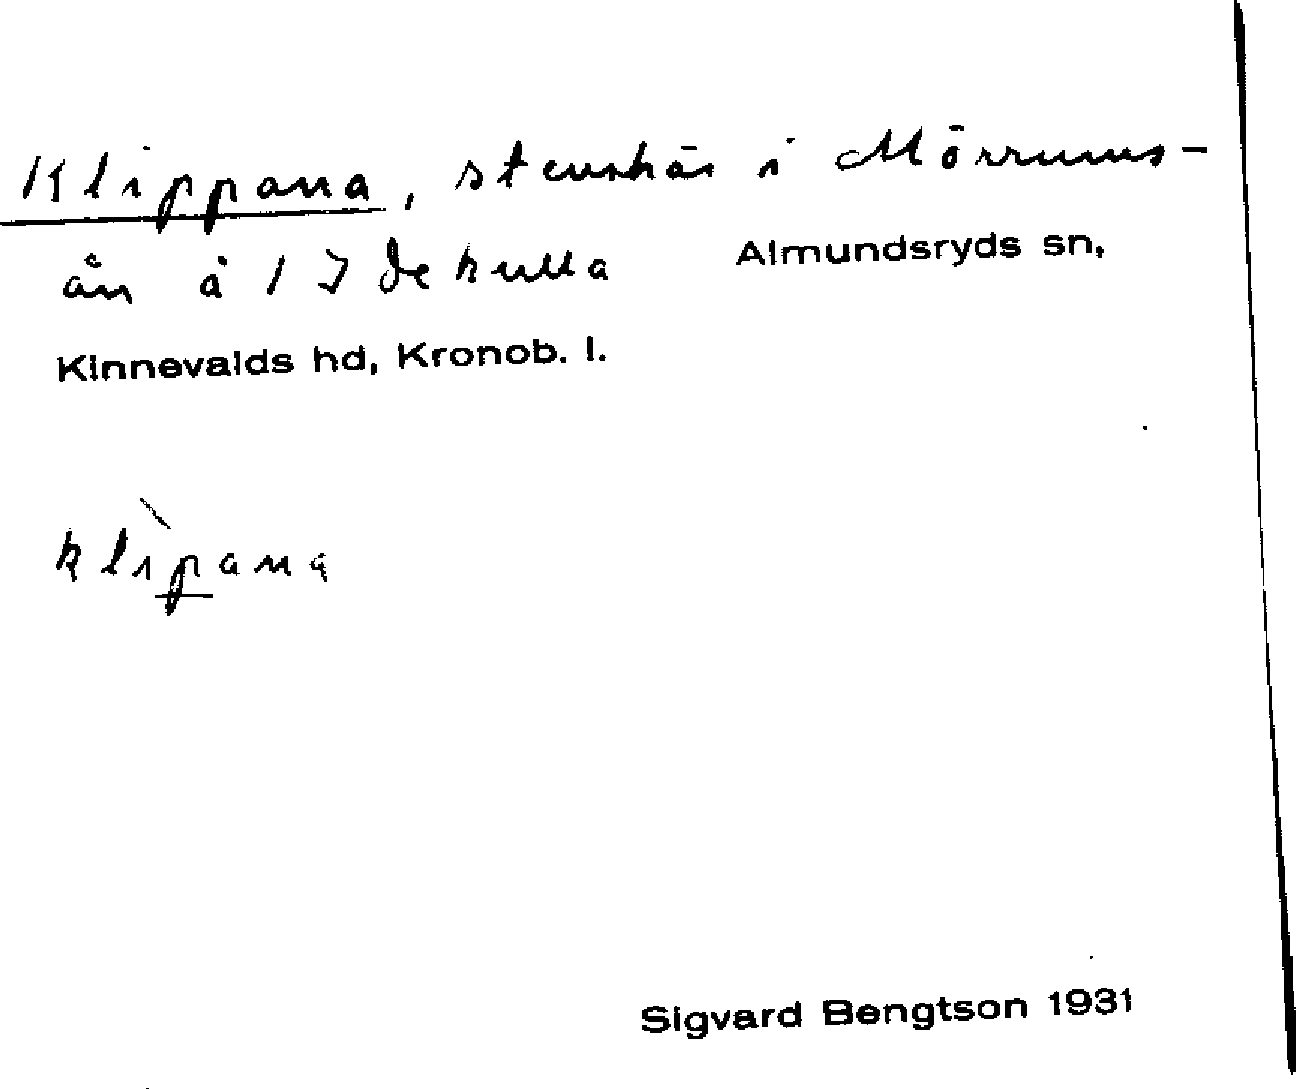 Klippana, stenskär i Mörrums-
ån å 1 Idekulla Almundsryds sn,
Kinnevalds hd, Kronob. l.
klìpana
Sigvard Bengtson 1931